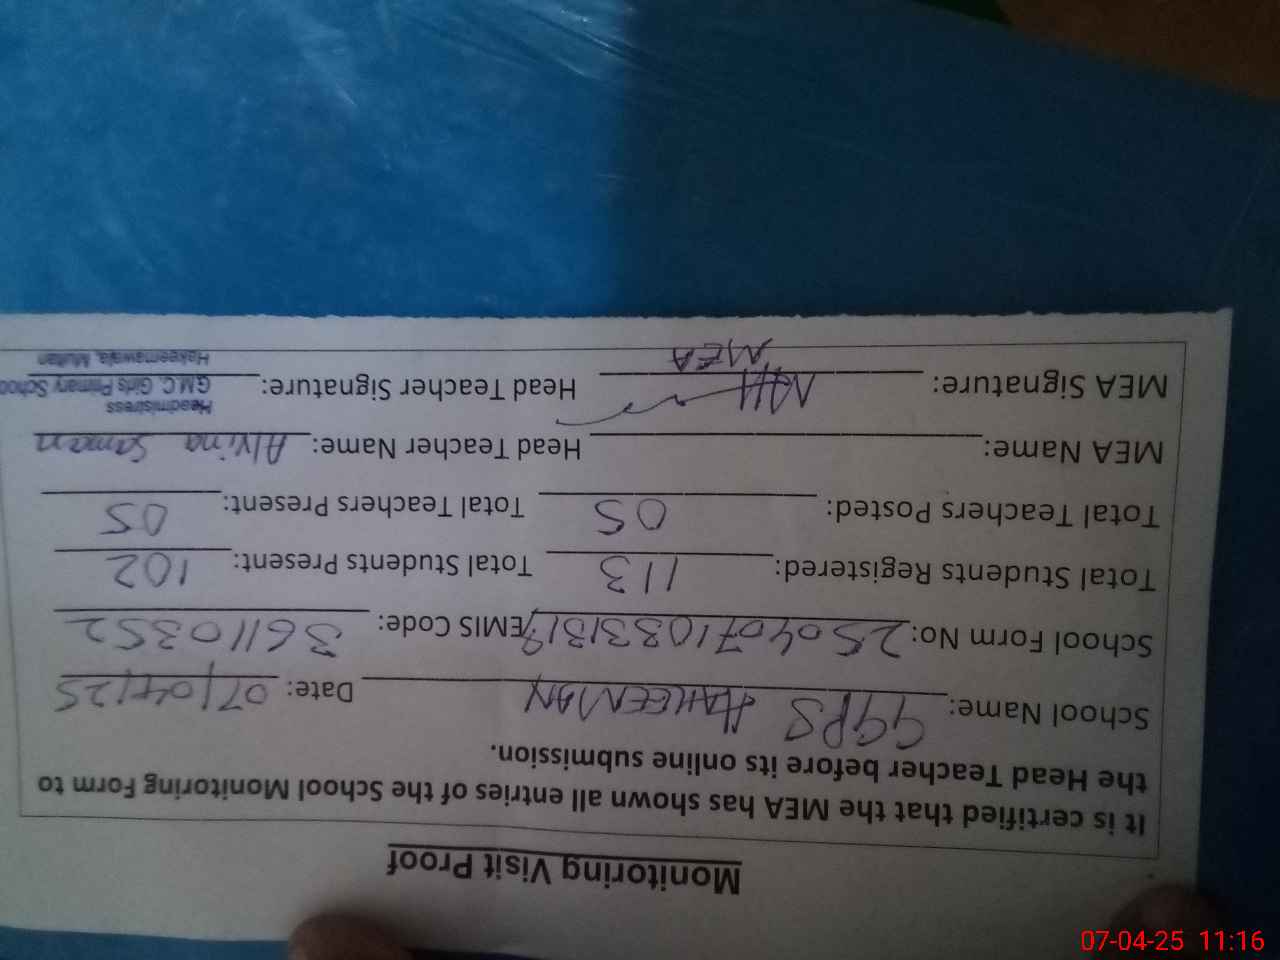 Monitoring Visit Proof
It is certified that the MEA has shown all entries of the School Monitoring Form to
the Head Teacher before its online submission.
School Name: GGPS HAKEEMAN Date: 07/04/25
School Form No: EMIS Code: 36110352
Total Students Registered: 113 Total Students Present: 102
Total Teachers Posted: 05 Total Teachers Present: 05
MEA Name: Head Teacher Name: Alvina Saman
MEA Signature: MEA Head Teacher Signature:
Headmistress
G.M.C. Girls Primary School
Hakeemawala, Multan
07-04-25 11:16